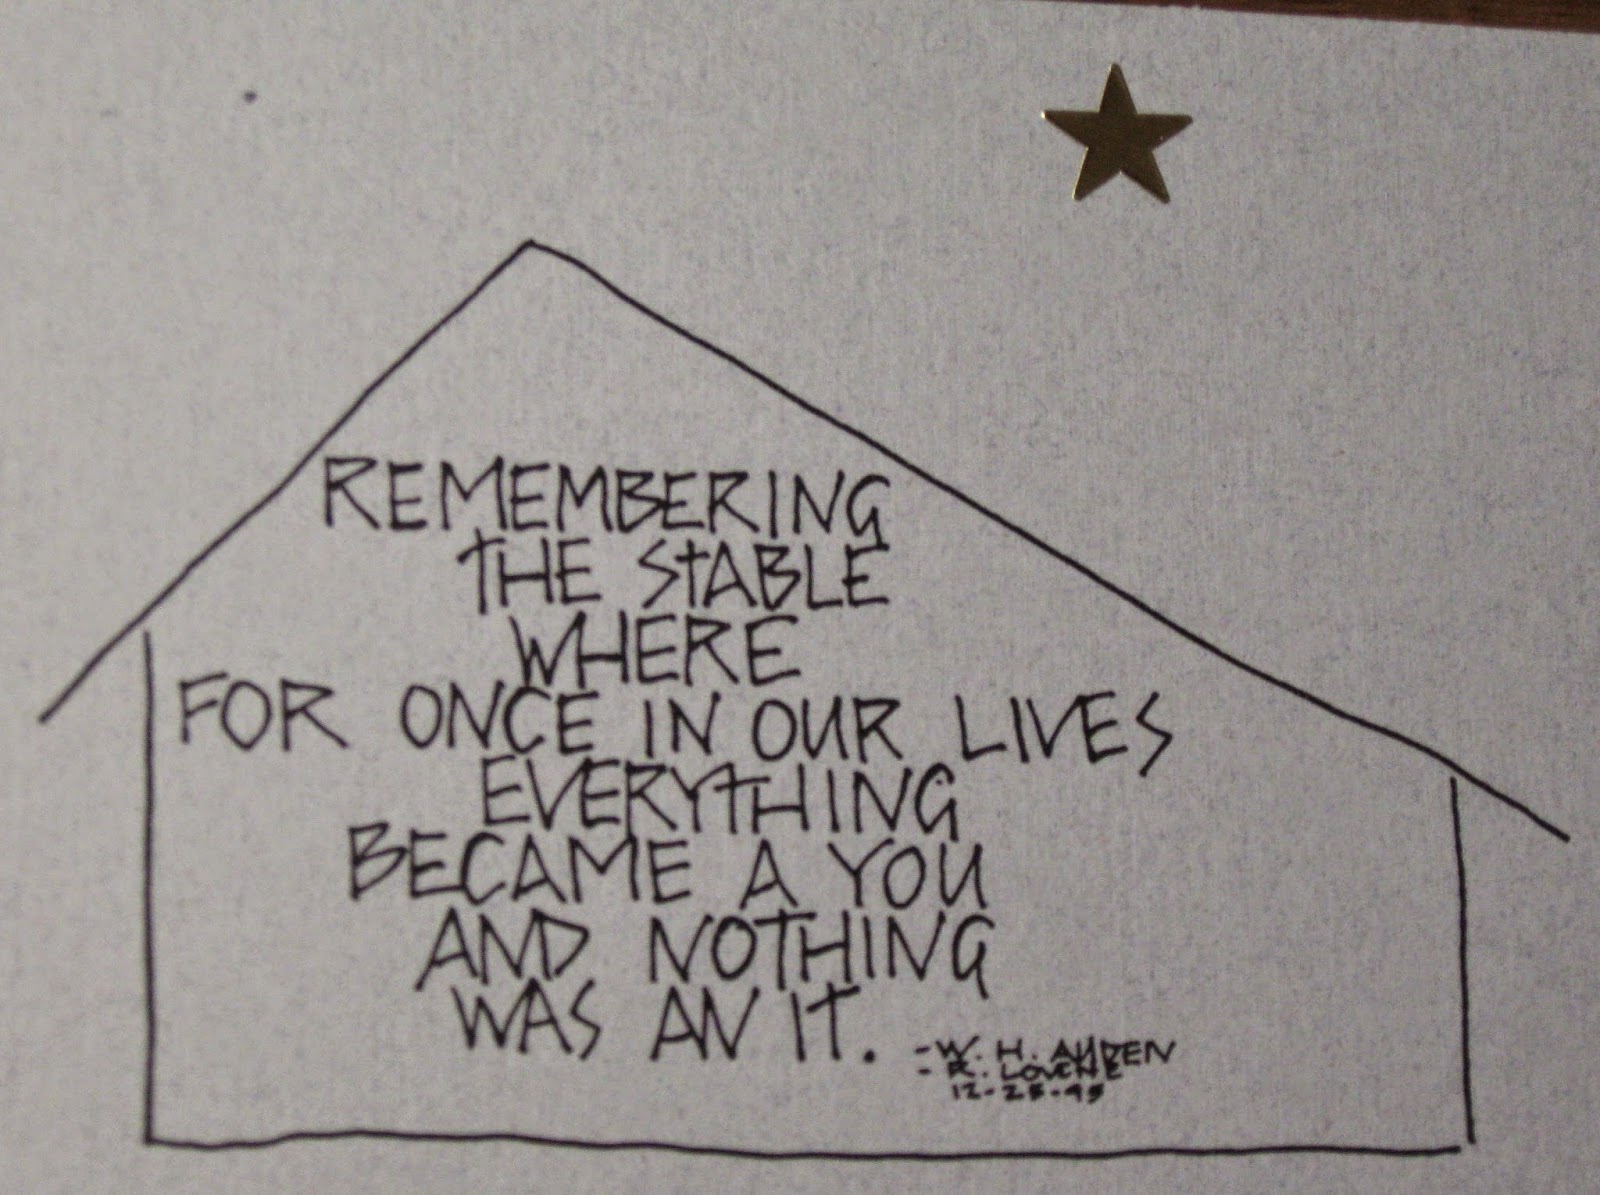 REMEMBERING
THE STABLE
WHERE
FOR ONCE IN OUR LIVES
EVERYTHING
BECAME A YOU
AND NOTHING
WAS AN IT.
-W. H. AUDEN
12-25-95